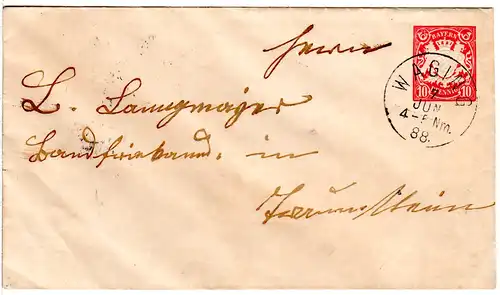 BAYERN
10 PFENNIG 10
WAGING
JUN
4-5 Nm.
88.
Herrn
L. Langmayer
in
Traunstein